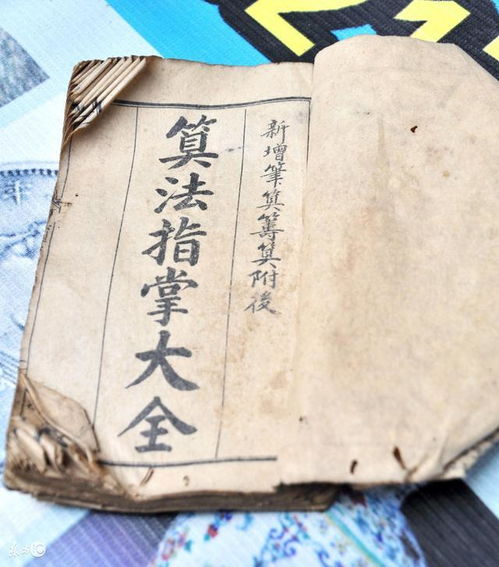 新增筆算籌算附後
算法指掌大全